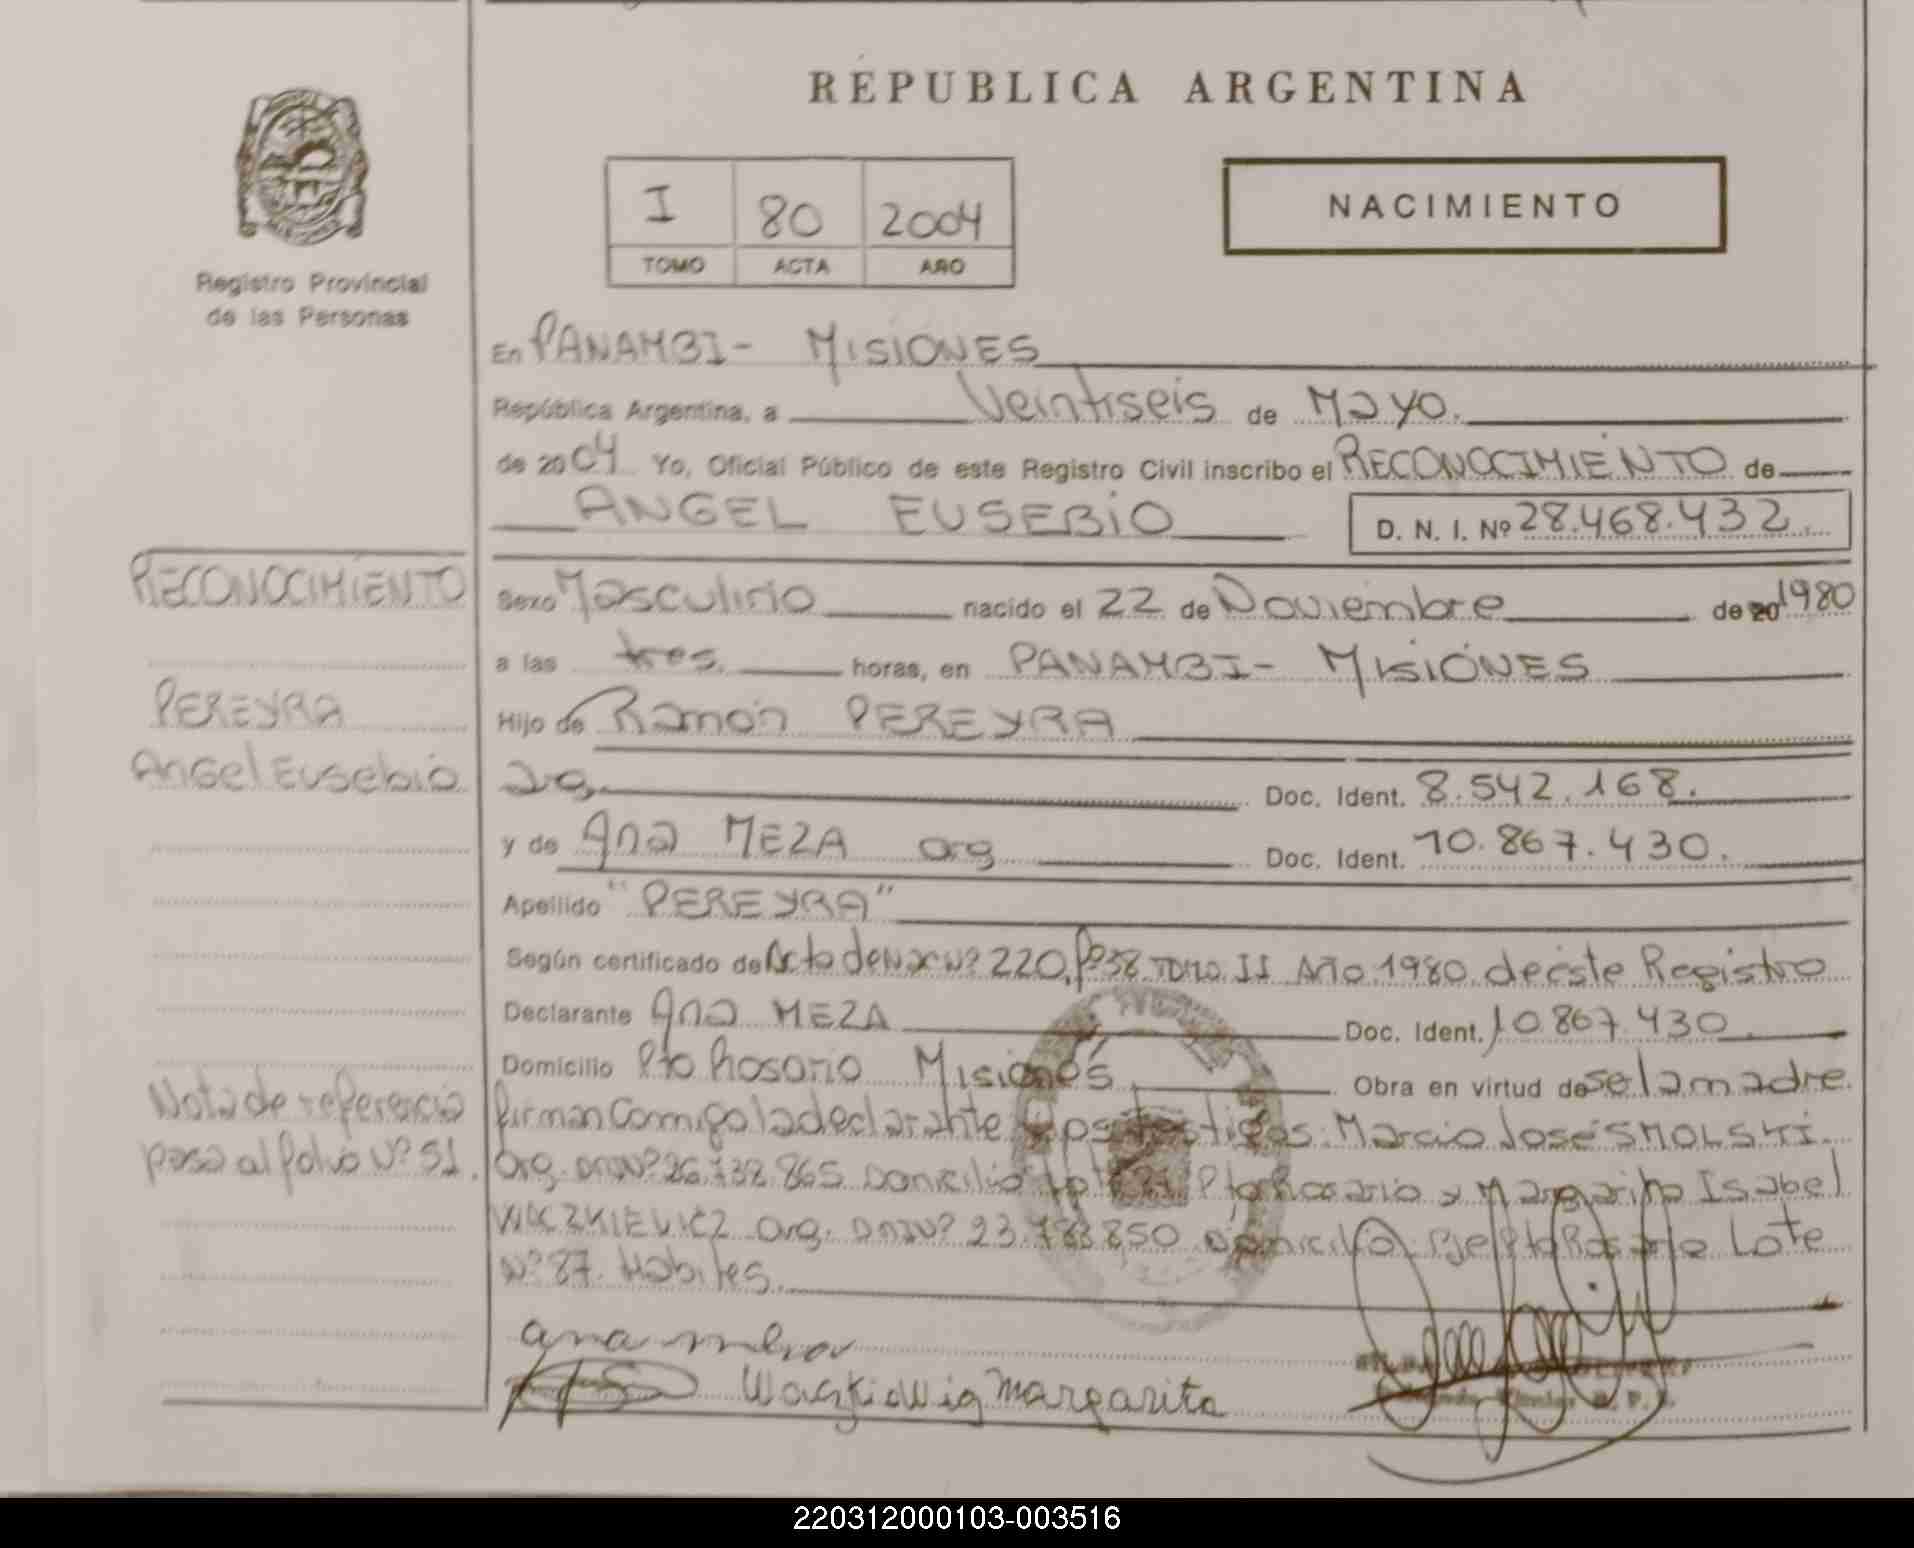 REPUBLICA ARGENTINA
I 80 2004
TOMO ACTA AÑO
NACIMIENTO
Registro Provincial
de las Personas
En PANAMBI - MISIONES
República Argentina, a Veintiseis de Mayo.
de 2004 Yo, Oficial Público de este Registro Civil inscribo el RECONOCIMIENTO de
ANGEL EUSEBIO D. N. I. Nº 28.468.432
RECONOCIMIENTO
Sexo Masculino nacido el 22 de Noviembre de 20 1980
a las tres horas, en PANAMBI - MISIONES
PEREYRA
Hijo de Ramón PEREYRA
Angel Eusebio
arg. Doc. Ident. 8.542.168.
y de Ana MEZA arg Doc. Ident. 10.867.430.
Apellido "PEREYRA"
Según certificado de Acta de Nac Nº 220, Fº 38 Tomo II Año 1980 de este Registro
Declarante Ana MEZA Doc. Ident. 10.867.430
Domicilio Pto Rosario Misiones Obra en virtud de se la madre.
Nota de referencia
pasa al folio Nº 51.
firman conmigo la declarante y los testigos: Marcio José SMOLSKI
arg. DNI Nº 26.732.865 Domicilio Pto Rosario y Margarita Isabel
WACZKIEVICZ arg. DNI Nº 23.783.850 Domicilio Pto Rosario Lote
Nº 87. Habiles.
ana meza
Margarita
220312000103-003516